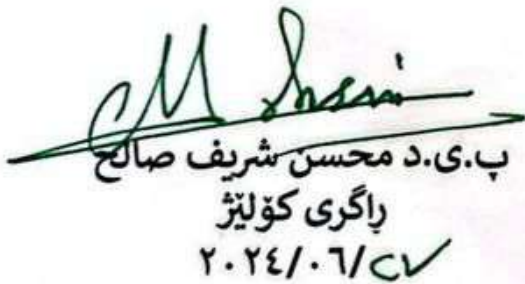 پ.ی.د محسن شريف صالح
ڕاگری كۆلێژ
٢٠٢٤/٠٦/٢٧